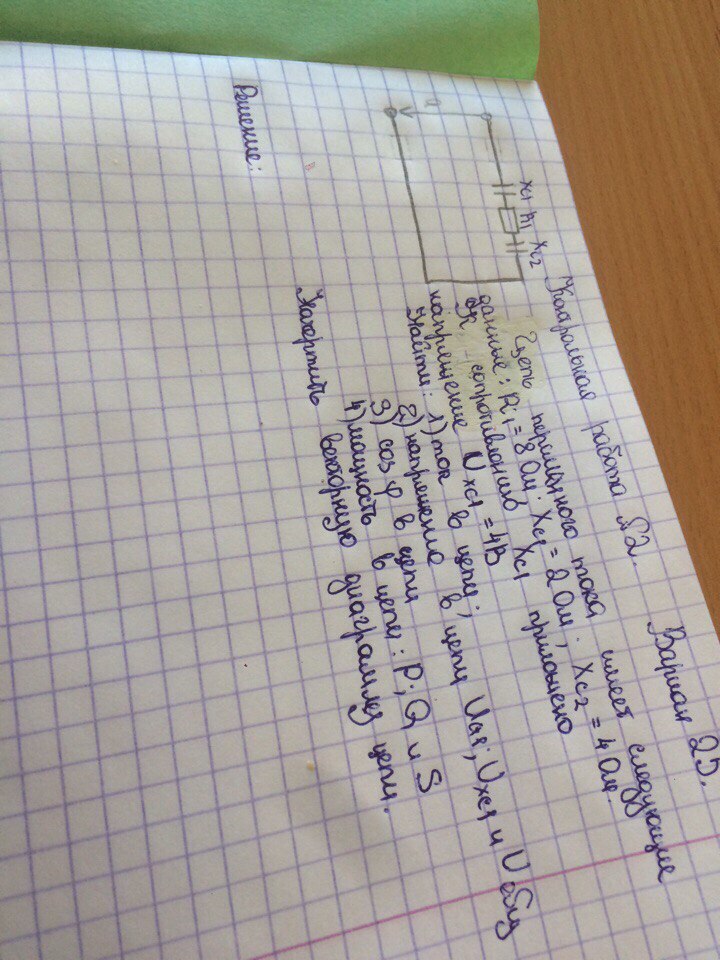 Контрольная работа №2. Вариан 25.
Цепь переменного тока имеет следующие
данные: R1 = 8 Ом. Xc1 = 2 Ом; Xc2 = 4 Ом.
к сопротивлению Xc1 приложено
напряжение Uxc1 = 4В
Найти: 1) ток в цепи;
2) напряжение в цепи UR1; Uxc1 и U общ
3) cos φ в цепи
4) мощность в цепи: P; Q и S
Начертить векторную диаграмму цепи.
Xc1 R1 Xc2
Решение: